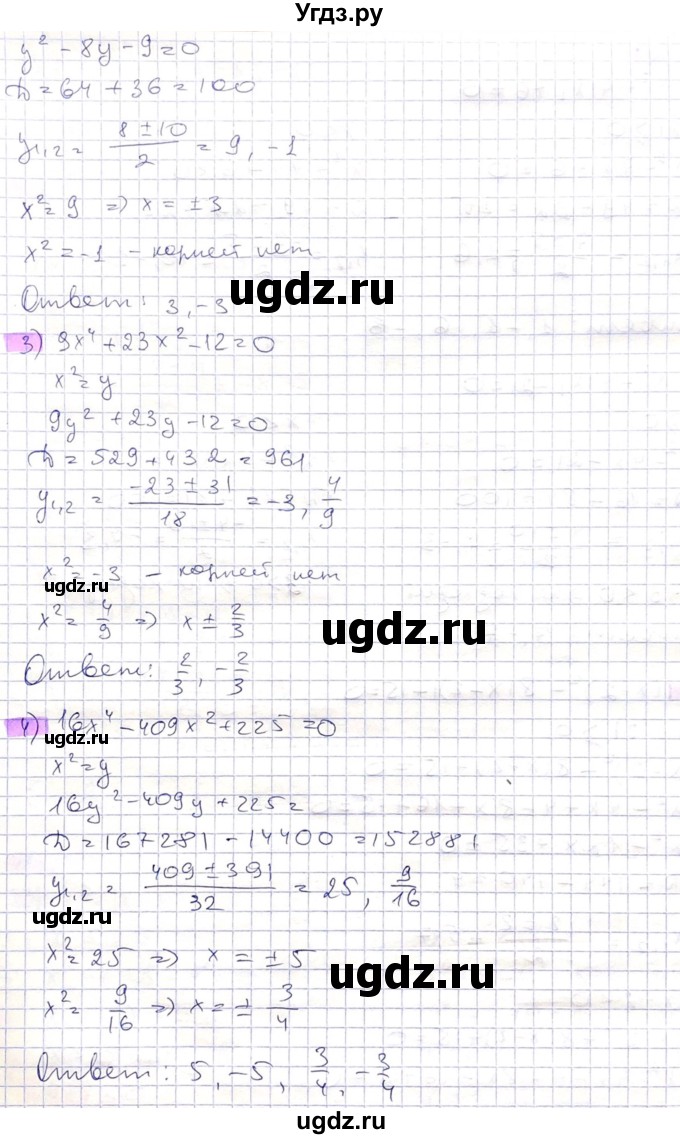 Угдз.ру
y² - 8y - 9 = 0
D = 64 + 36 = 100
y₁,₂ = (8 ± 10)/2 = 9, -1
x² = 9 => x = ± 3
x² = -1 - корней нет
Ответ: 3, -3
ugdz.ru
3) 9x⁴ + 23x² - 12 = 0
x² = y
9y² + 23y - 12 = 0
D = 529 + 432 = 961
y₁,₂ = (-23 ± 31)/18 = -3, 4/9
x² = -3 - корней нет
ugdz.ru
x² = 4/9 => x ± 2/3
ugdz.ru
Ответ: 2/3, -2/3
4) 16x⁴ - 409x² + 225 = 0
ugdz.ru
x² = y
16y² - 409y + 225 =
D = 167281 - 14400 = 152881
y₁,₂ = (409 ± 391)/32 = 25, 9/16
ugdz.ru
x² = 25 => x = ± 5
ugdz.ru
x² = 9/16 => x = ± 3/4
Ответ: 5, -5, 3/4, -3/4
ugdz.ru